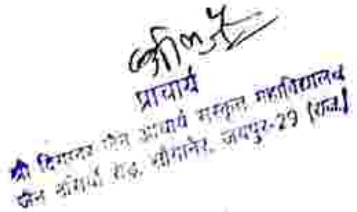 प्राचार्य
श्री दिगम्बर जैन आचार्य संस्कृत महाविद्यालय
जैन नसियाँ रोड़, सांगानेर, जयपुर-29 (राज.)